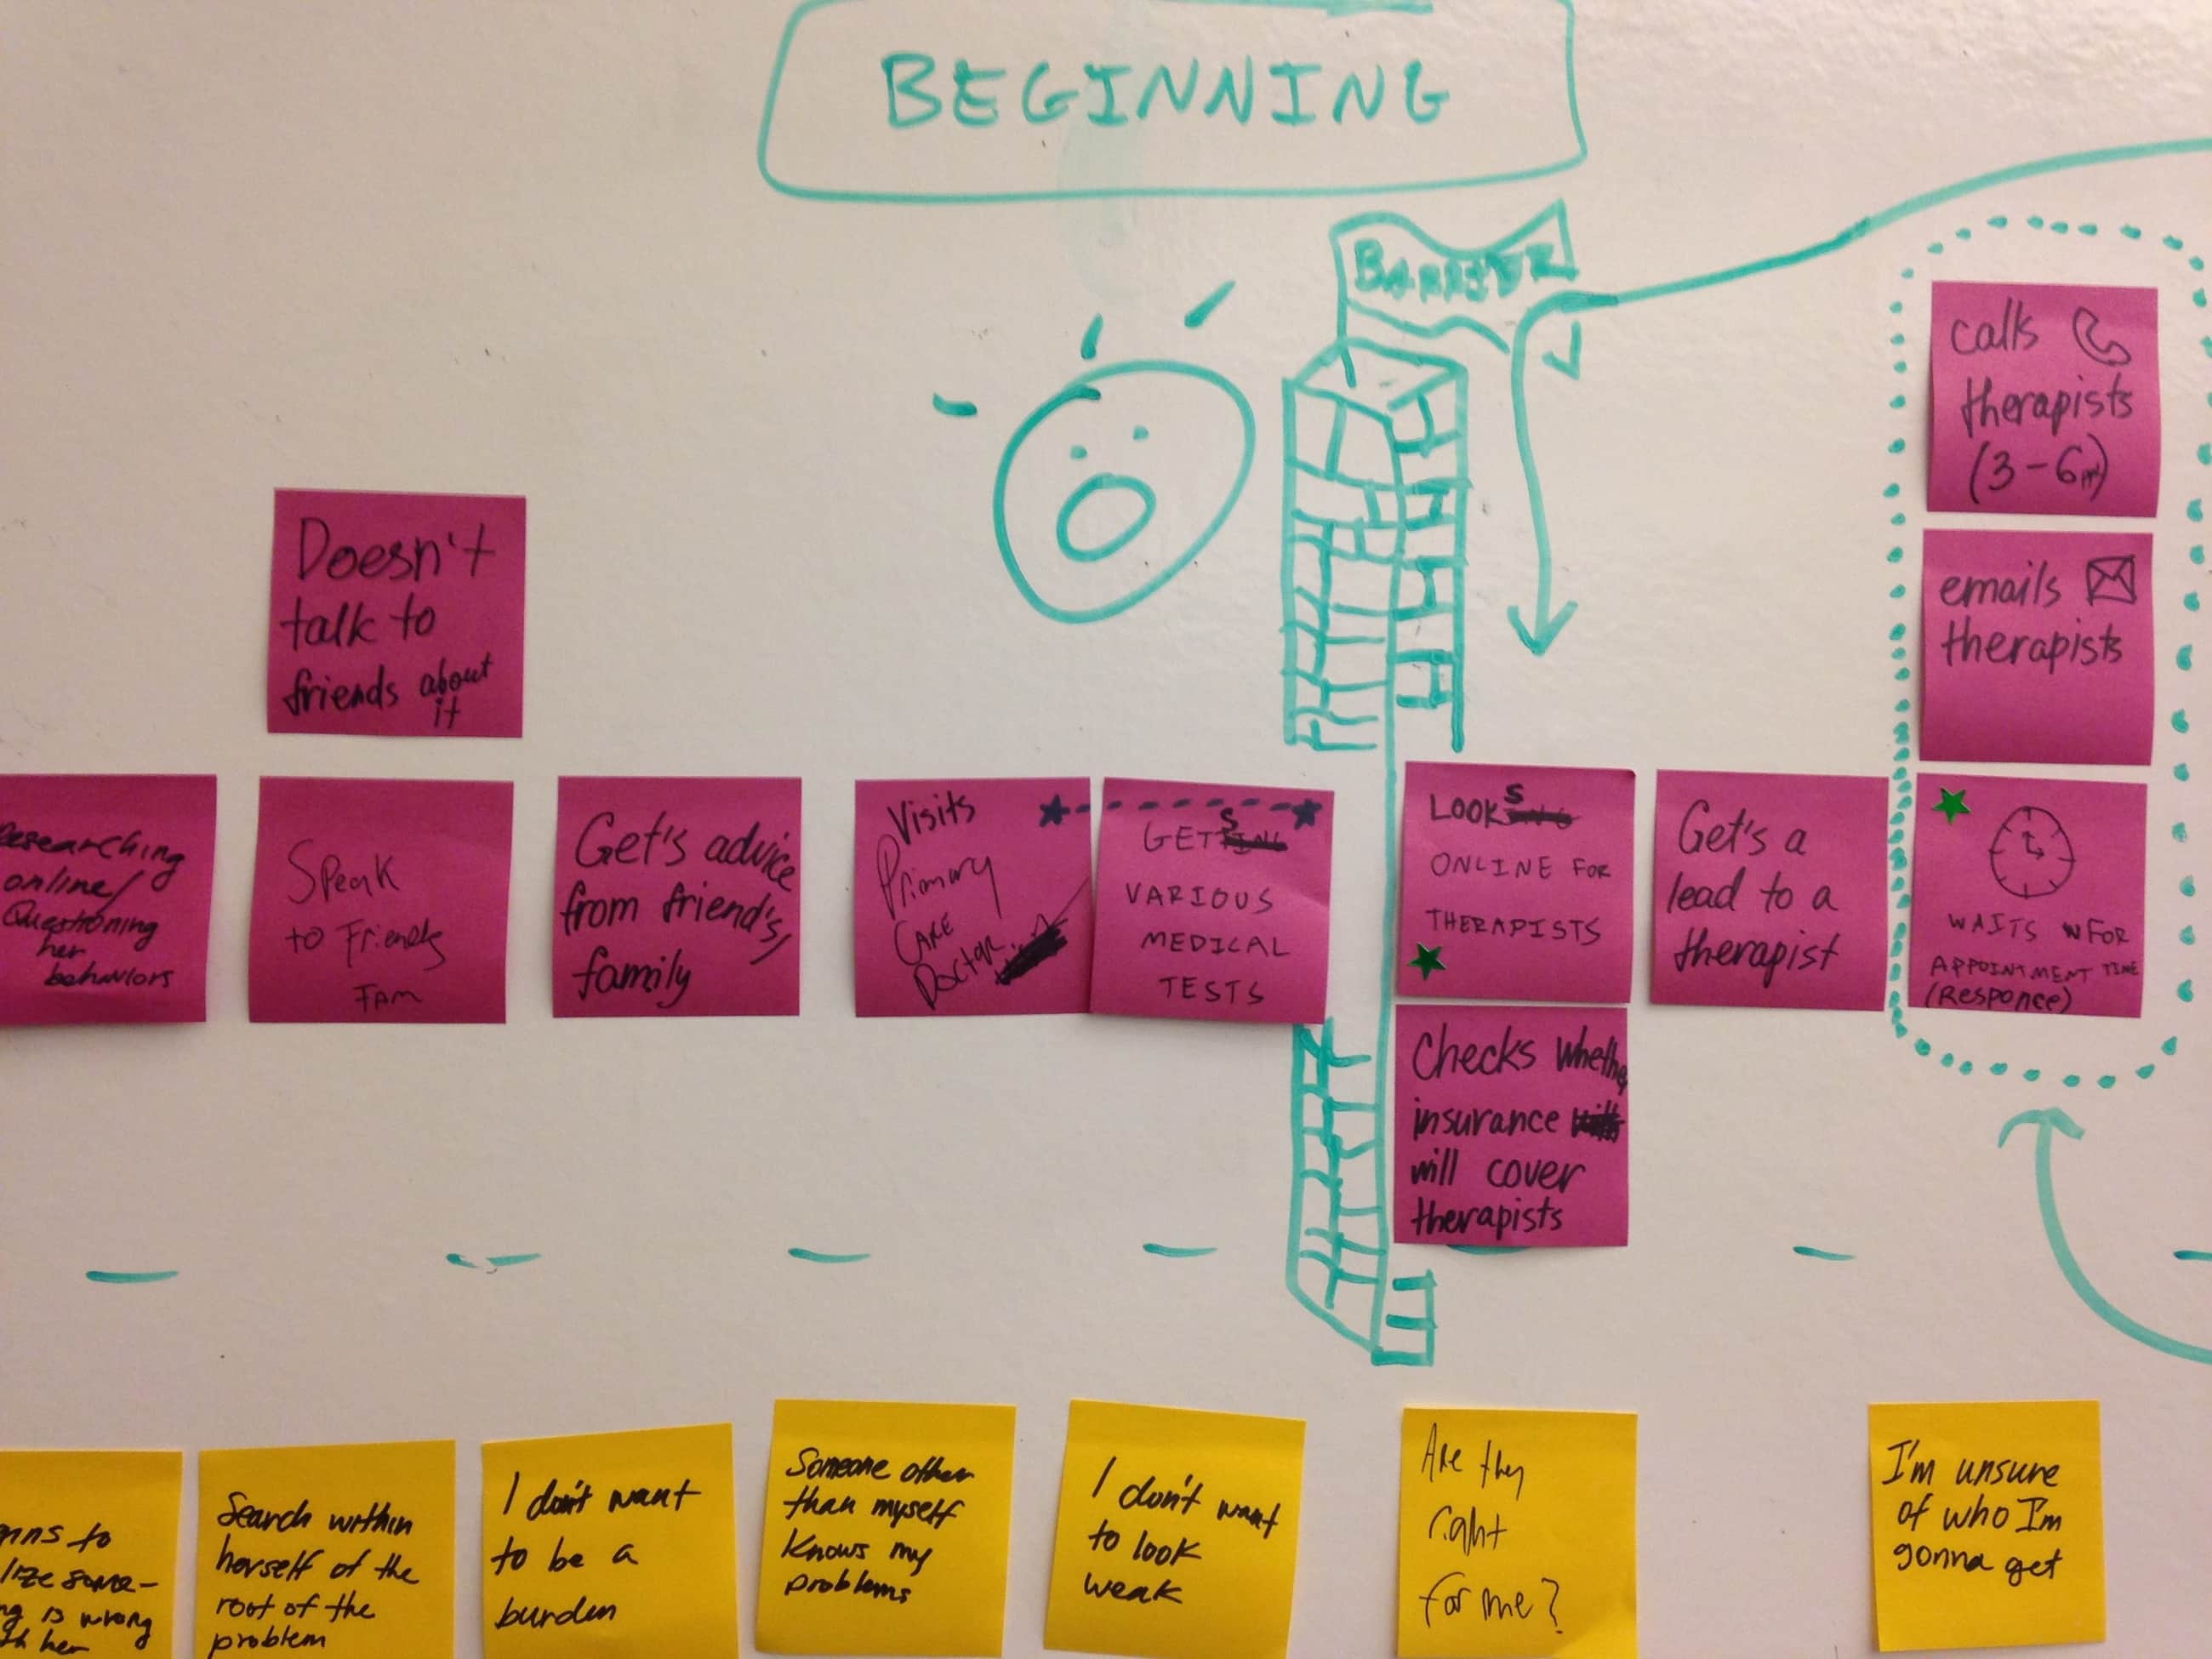 BEGINNING
BARRIER
calls
therapists
(3-6)
emails
therapists
Doesn't
talk to
friends about
it
Researching
online/
Questioning
her
behaviors
Speak
to Friends
FAM
Get's advice
from friend's/
family
Visits
Primary
CARE
Doctor...
GETS
VARIOUS
MEDICAL
TESTS
LOOKS
ONLINE FOR
THERAPISTS
Checks whether
insurance
will cover
therapists
Get's a
lead to a
therapist
WAITS FOR
APPOINTMENT TIME
(Responce)
to
some-
is wrong
her
Search within
herself of the
root of the
problem
I don't want
to be a
burden
Someone other
than myself
knows my
problems
I don't want
to look
weak
Are they
right
for me?
I'm unsure
of who I'm
gonna get